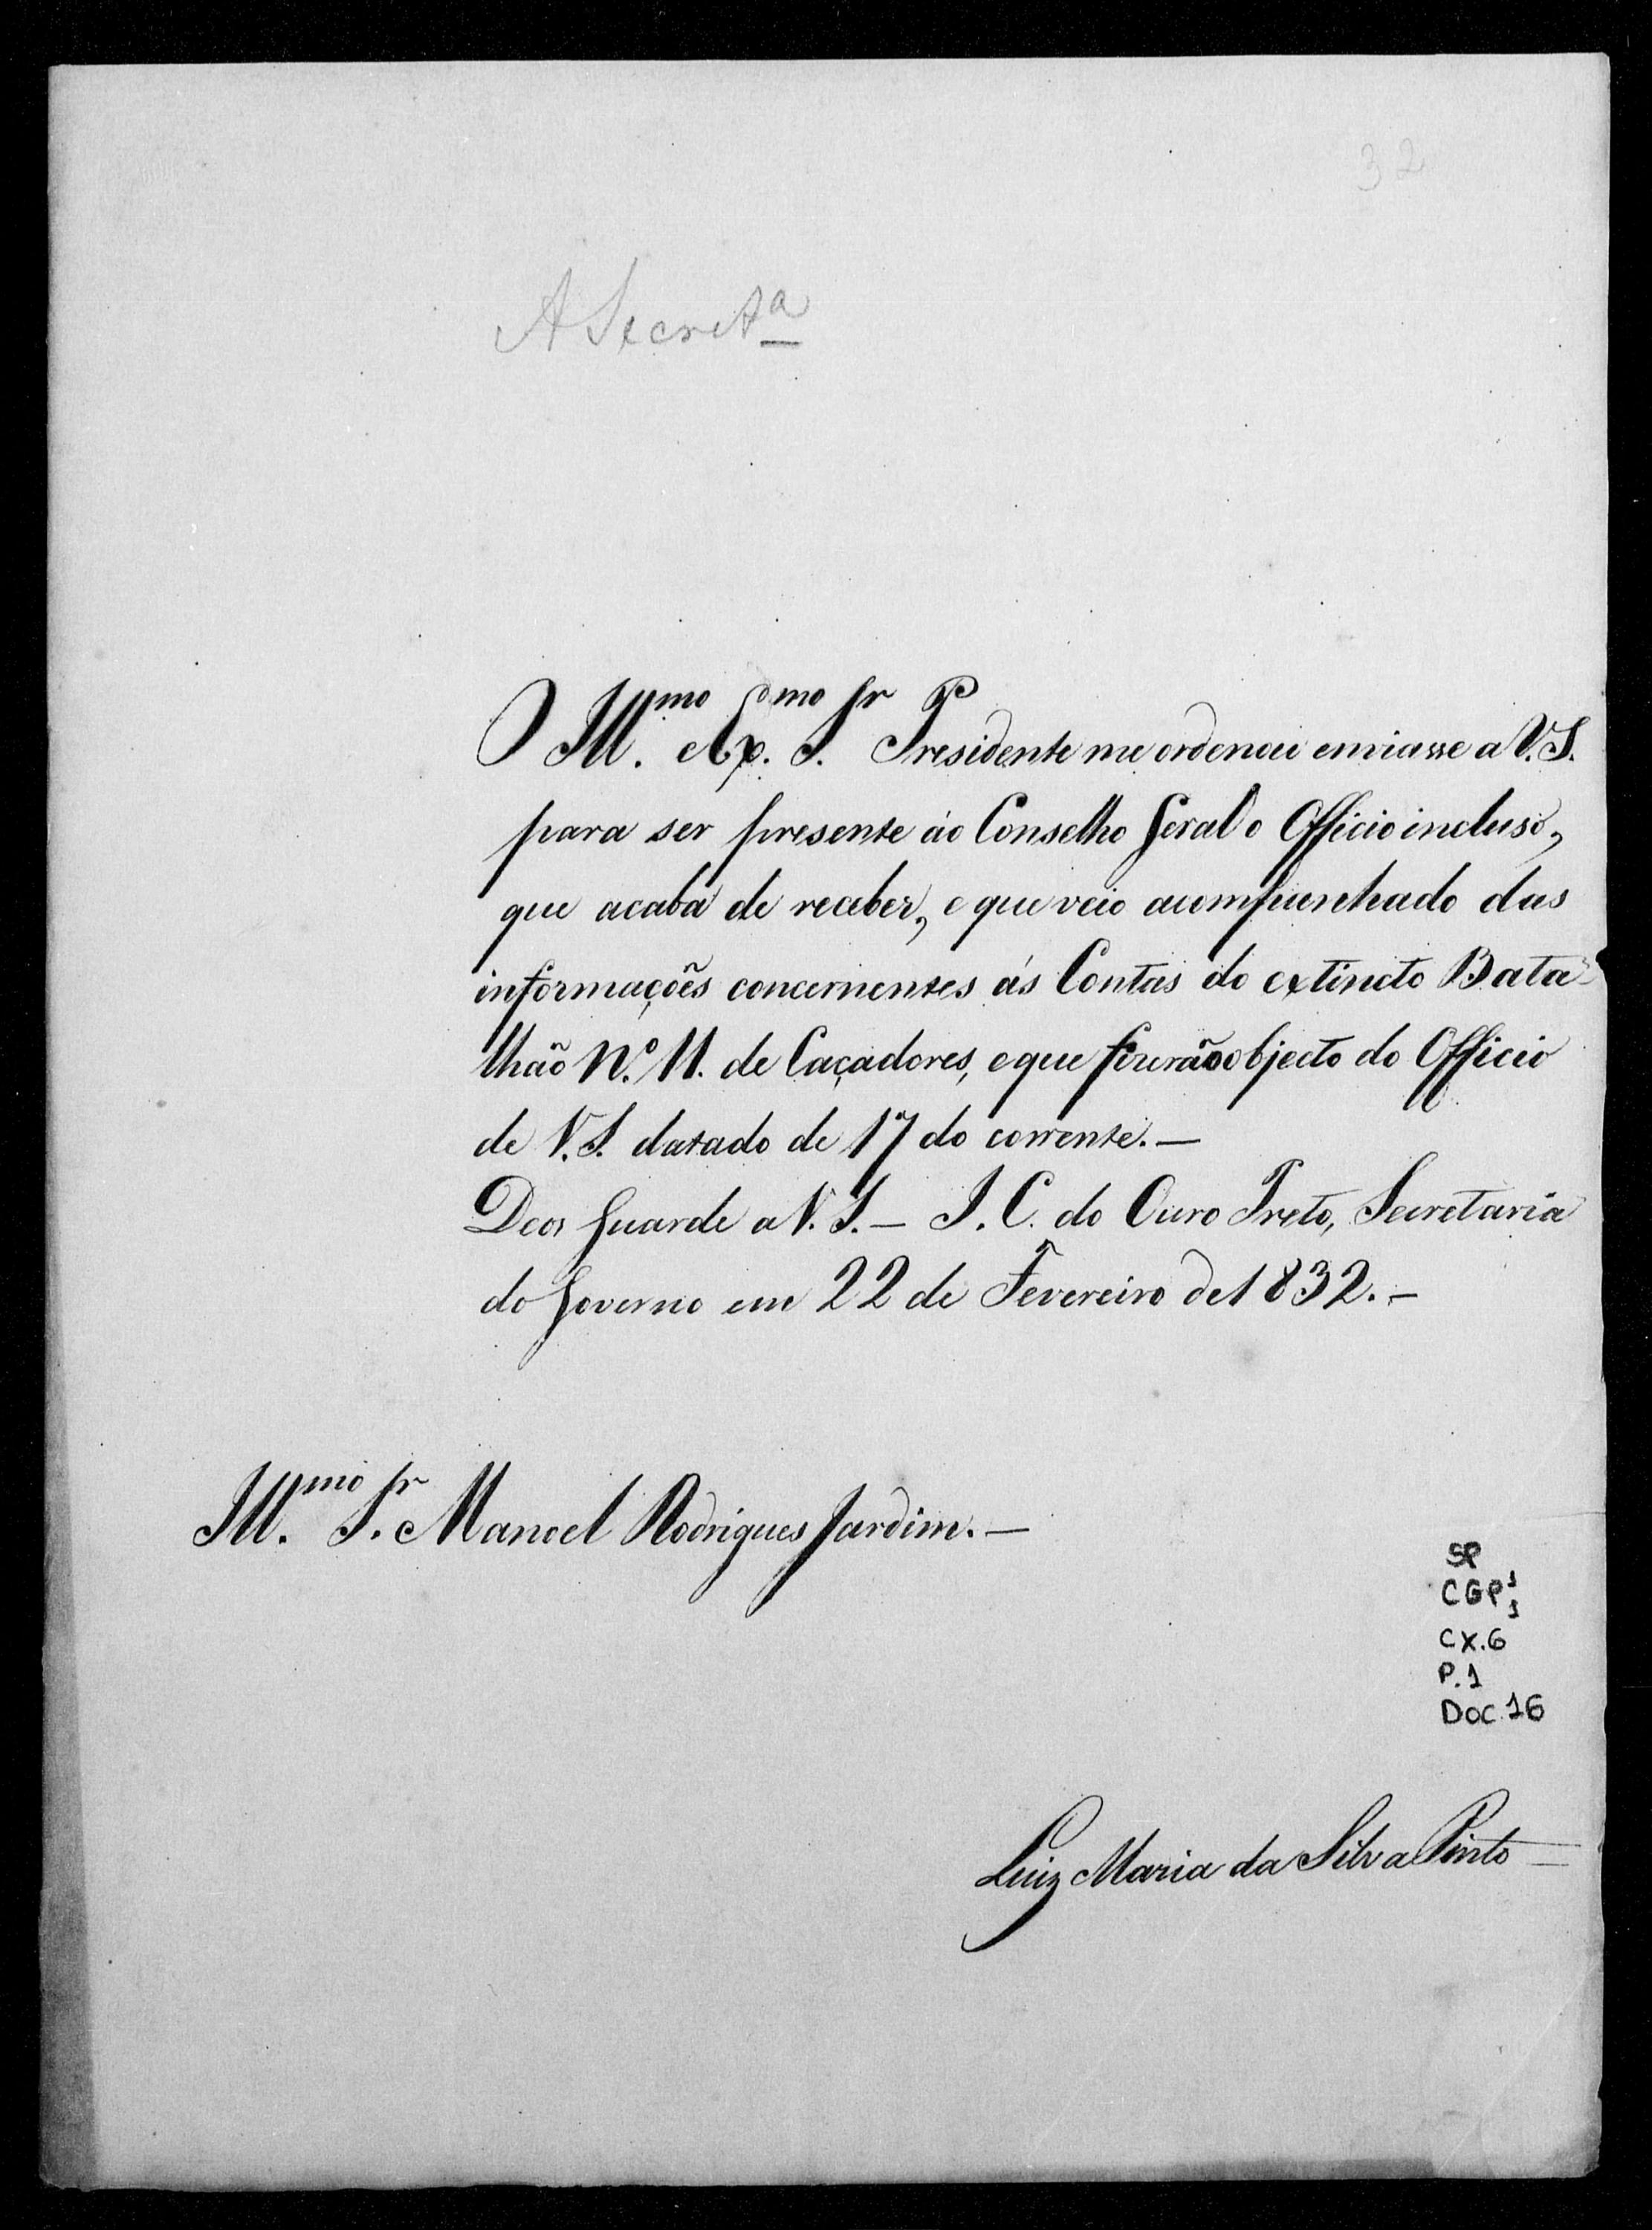 32
A Secret.ª
O Ill.mo Ex.mo Sr. Presidente me ordenou enviasse a V. S.
para ser presente ao Conselho Geral o Officio incluso,
que acaba de receber, e que veio acompanhado das
informações concernentes ás Contas do extincto Bata-
lhão N.º 11. de Caçadores, e que fizerão objecto do Officio
de V. S. datado de 17 do corrente. —
Deos Guarde a V. S. — I. C. do Ouro Preto, Secretaria
do Governo em 22 de Fevereiro de 1832. —
Ill.mo Sr. Manoel Rodrigues Jardim. —
SP
CGP¹
1
CX. 6
P. 1
DOC. 16
Luiz Maria da Silva Pinto